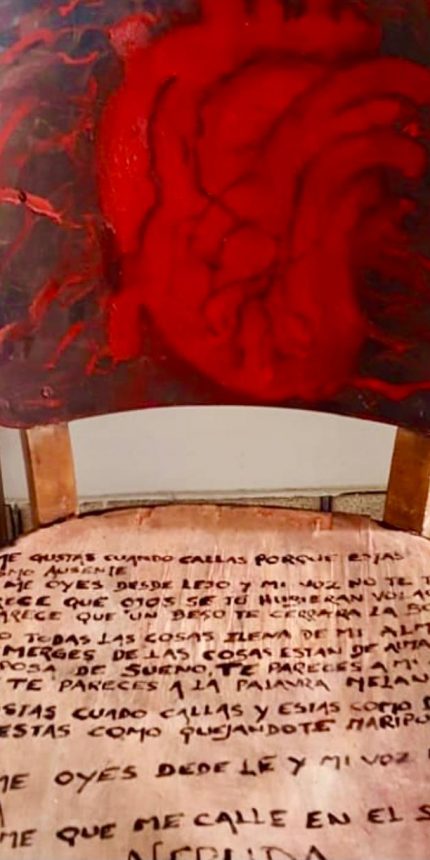 ME GUSTAS CUANDO CALLAS PORQUE ESTAS
OMO AUSENTE
ME OYES DESDE LEJO Y MI VOZ NO TE T
RECE QUE OJOS SE TU HUBIERAN VOLA
ARECE QUE UN BESO TE CERRARA LA BO
O TODAS LAS COSAS LLENA DE MI ALM
MERGES DE LAS COSAS ESTAN DE ALMA
POSA DE SUEÑO, TE PARECES A MI
TE PARECES A LA PALAVRA MELAN
STAS CUADO CALLAS Y ESTAS COMO D
ESTAS COMO QUEJANDOTE MARIPO
ME OYES DEDE LE Y MI VOZ
ME QUE ME CALLE EN EL S
NERUDA